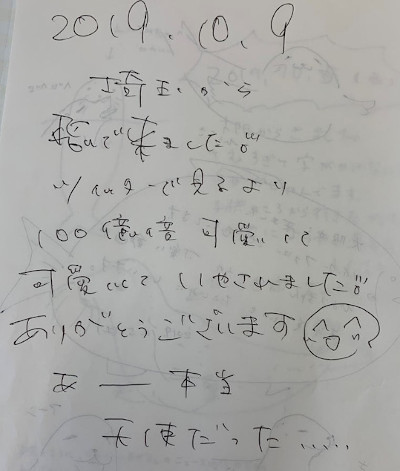 2019.10.9
埼玉から
来ました!!!
ツイッターで見るより
100億倍 可愛いくて
可愛いくて いやされました!!!
ありがとうございます
あー 本当
天使だった……